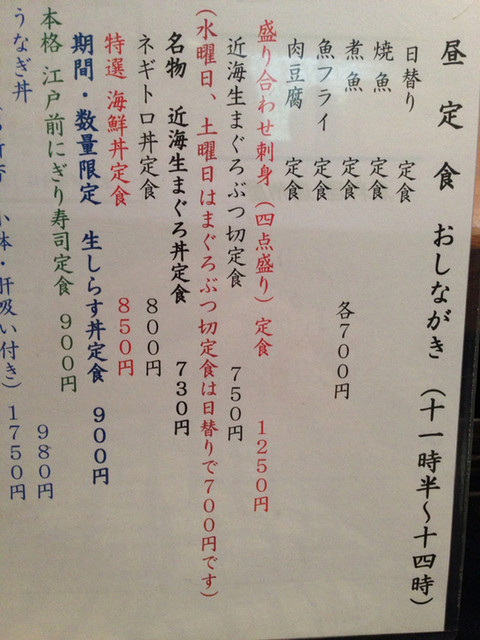 昼定食 おしながき (十一時半～十四時)
日替り 定食
焼魚 定食
煮魚 定食
魚フライ 定食
肉豆腐 定食
各700円
盛り合わせ刺身(四点盛り)定食 1250円
近海生まぐろぶつ切定食 750円
(水曜日、土曜日はまぐろぶつ切定食は日替りで700円です)
名物 近海生まぐろ丼定食 730円
ネギトロ丼定食 800円
特選 海鮮丼定食 850円
期間・数量限定 生しらす丼定食 900円
本格 江戸前にぎり寿司定食 900円
うなぎ丼 980円
小鉢・肝吸い付き) 1750円